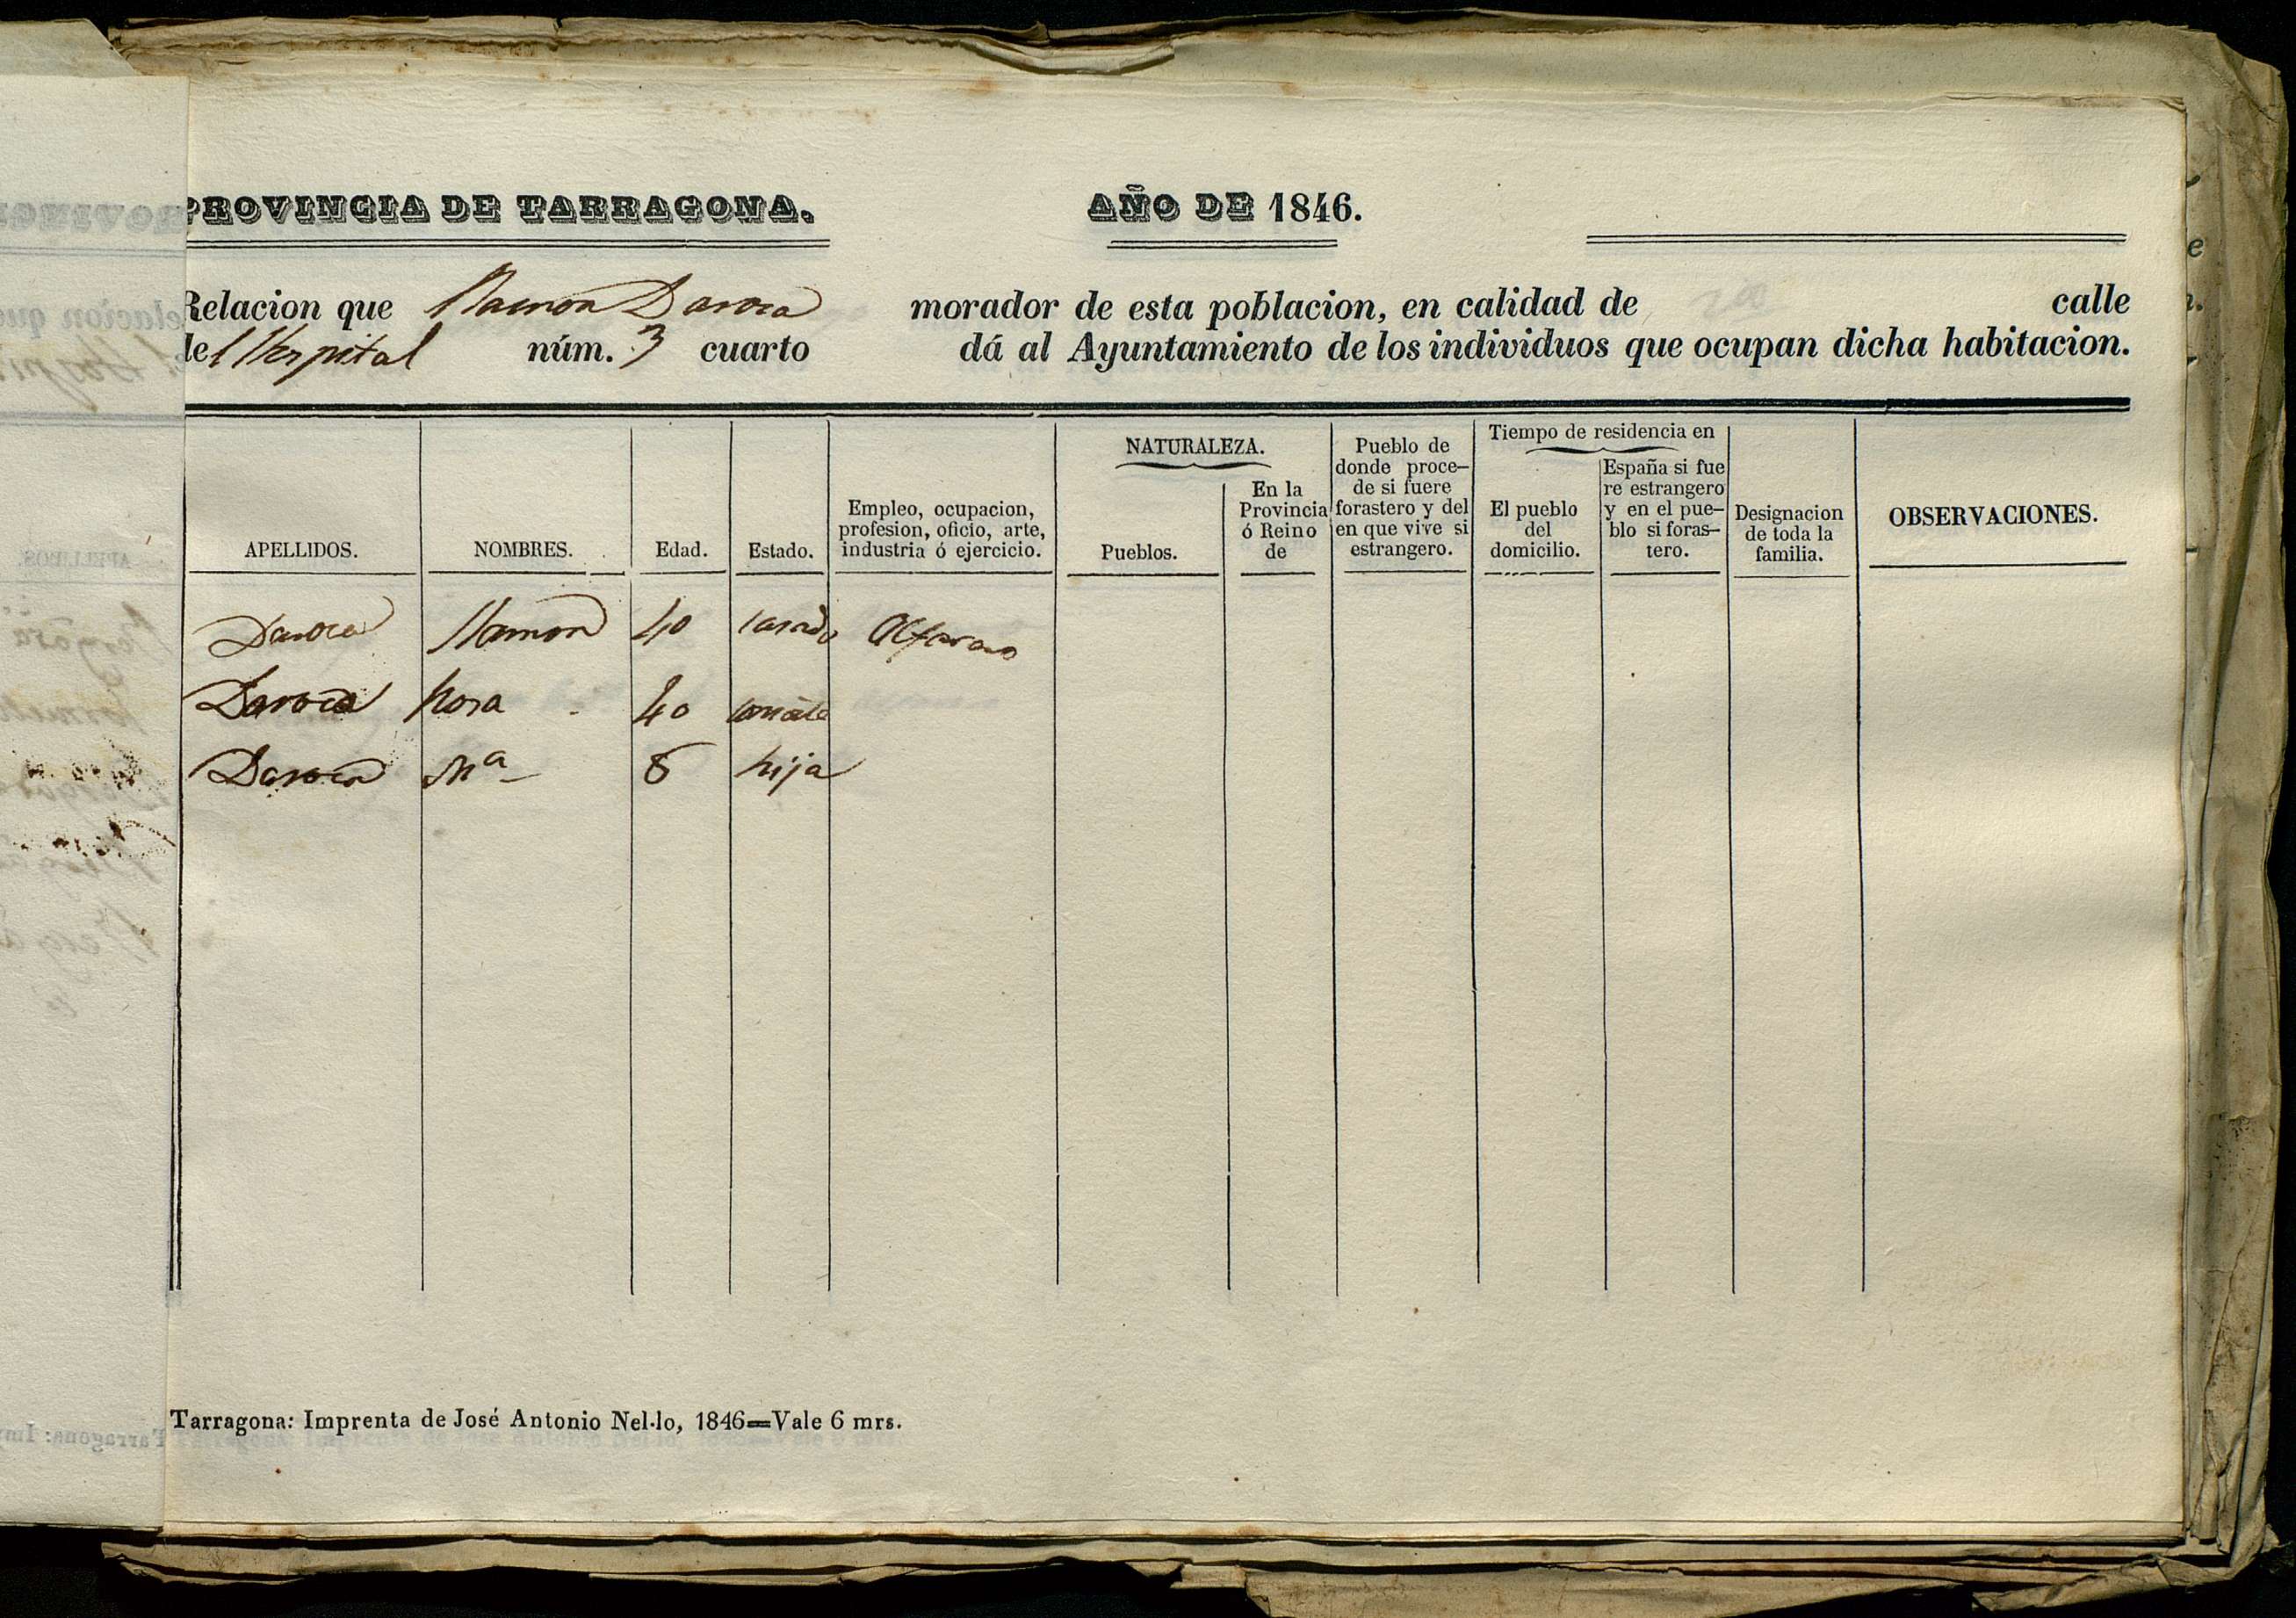 PROVINCIA DE TARRAGONA. AÑO DE 1846.
Relacion que Ramon Daroca morador de esta poblacion, en calidad de calle
del Hospital núm. 3 cuarto dá al Ayuntamiento de los individuos que ocupan dicha habitacion.
APELLIDOS.
NOMBRES.
Edad.
Estado.
Empleo, ocupacion,
profesion, oficio, arte,
industria ó ejercicio.
NATURALEZA.
Pueblos.
En la
Provincia
ó Reino
de
Pueblo de
donde proce-
de si fuere
forastero y del
en que vive si
estrangero.
Tiempo de residencia en
El pueblo
del
domicilio.
España si fue
re estrangero
y en el pue-
blo si foras-
tero.
Designacion
de toda la
familia.
OBSERVACIONES.
Daroca Ramon 40 casado Alfarero
Daroca Rosa 40 consorte
Daroca Mª 8 hija
Tarragona: Imprenta de José Antonio Nel·lo, 1846=Vale 6 mrs.